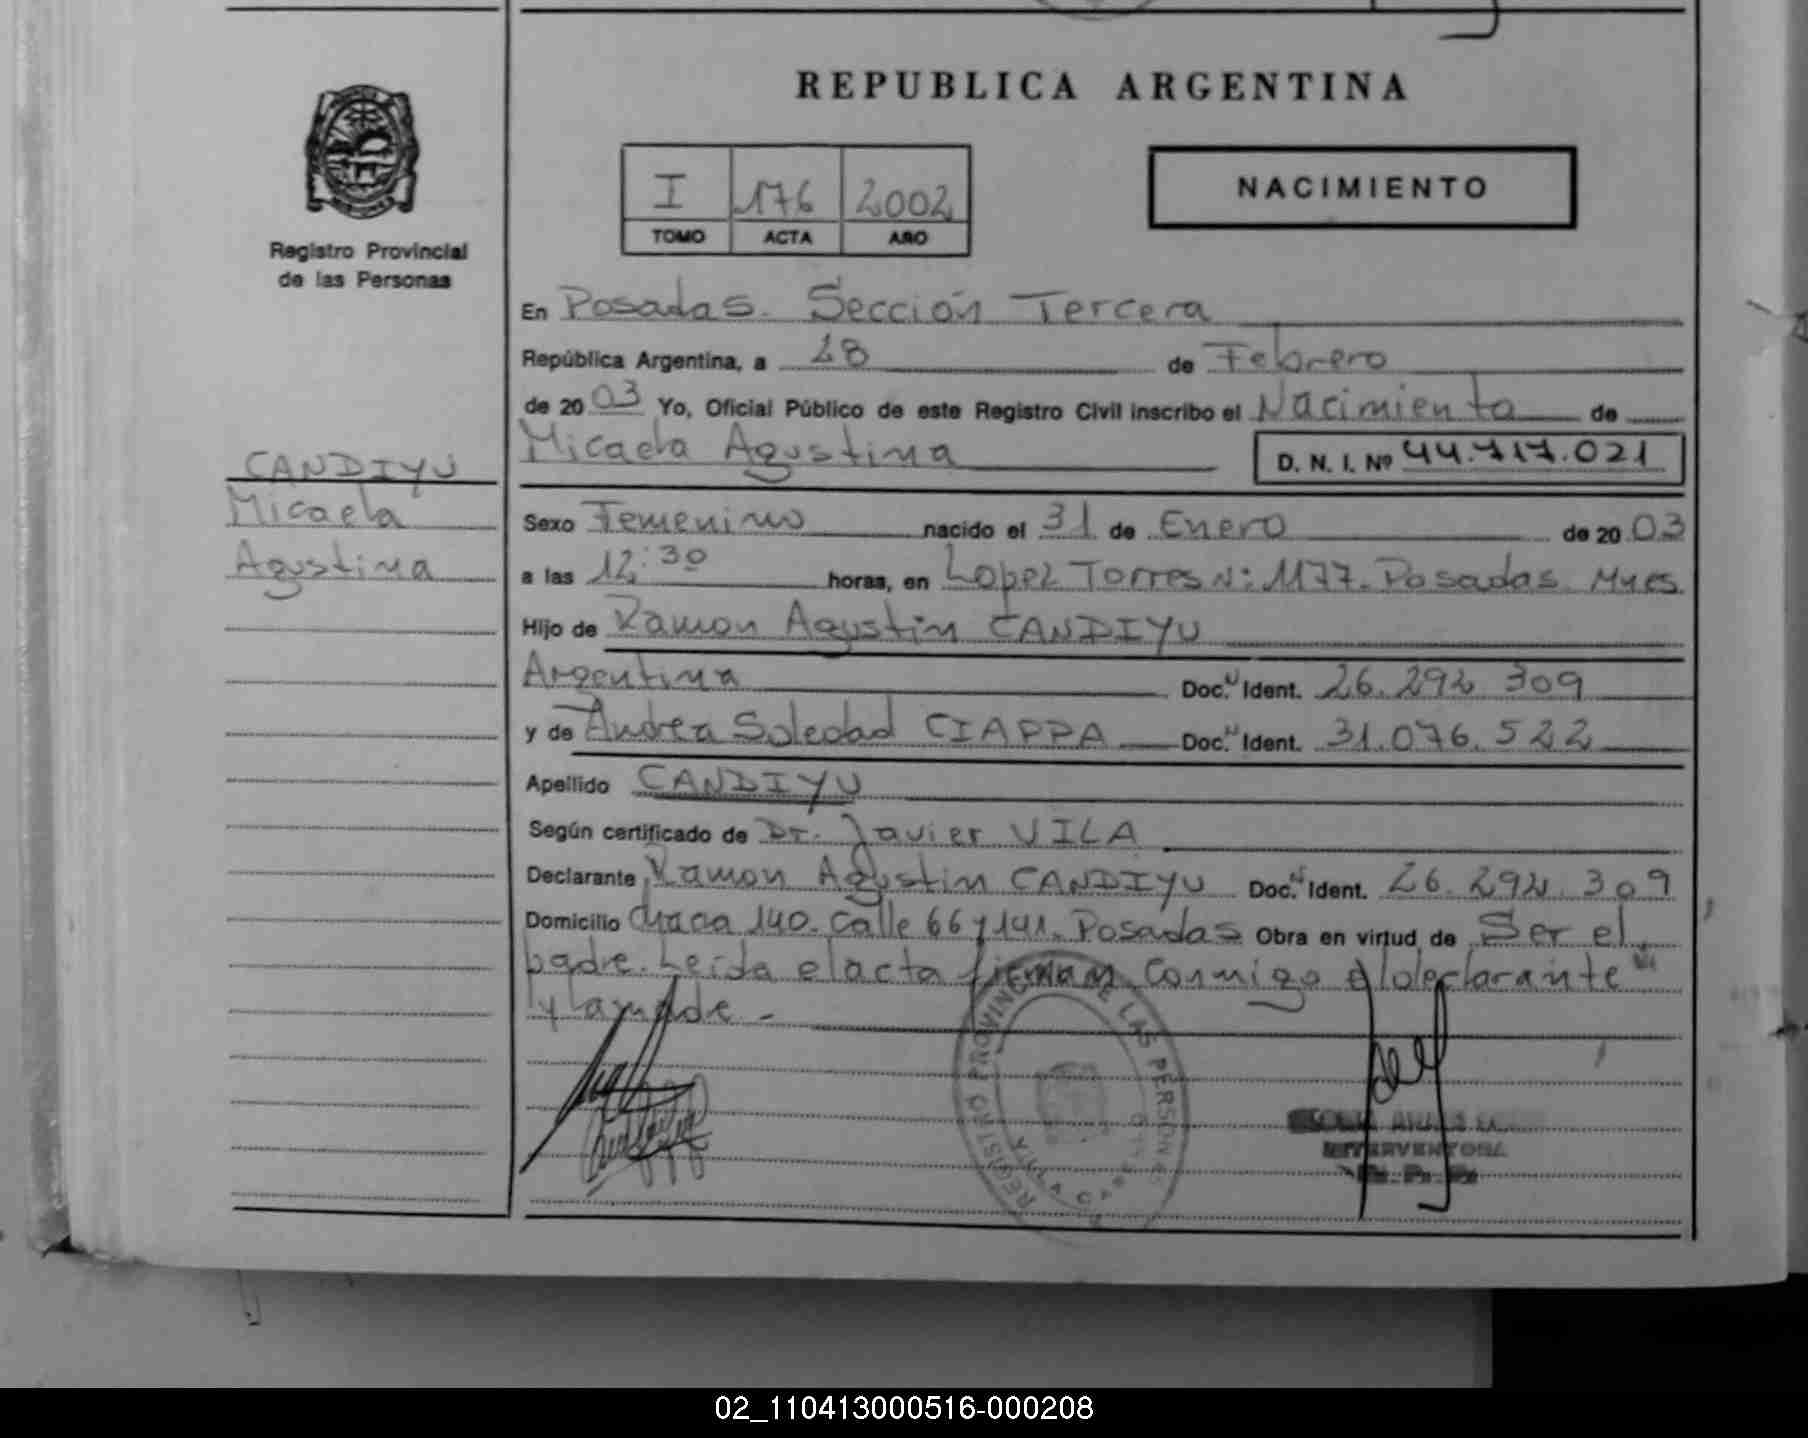 REPUBLICA ARGENTINA
I 176 2002
TOMO ACTA AÑO
NACIMIENTO
Registro Provincial
de las Personas
En Posadas. Sección Tercera
República Argentina, a 28 de Febrero
de 2003 Yo, Oficial Público de este Registro Civil inscribo el Nacimiento de
Micaela Agustina D. N. I. Nº 44.717.021
CANDIYU
Micaela
Agustina
Sexo Femenino nacido el 31 de Enero de 2003
a las 12:30 horas, en Lopez Torres N: 1177. Posadas. Mnes
Hijo de Ramon Agustin CANDIYU
Argentina Doc. Ident. 26.292 309
y de Andrea Soledad CIAPPA Doc. Ident. 31.076.522
Apellido CANDIYU
Según certificado de Dr. Javier VILA
Declarante Ramon Agustin CANDIYU Doc. Ident. 26.292.309
Domicilio Chaca 140. Calle 66 y 141. Posadas Obra en virtud de Ser el
padre. Leida el acta firman conmigo el declarante
y la madre -
REGISTRO PROVINCIAL DE LAS PERSONAS
INTERVENTORA
02_110413000516-000208